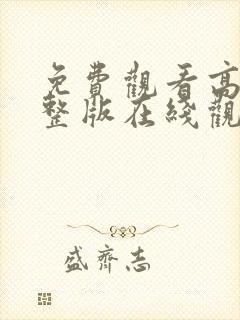 免費觀看高
整版在綫觀
盛齊志